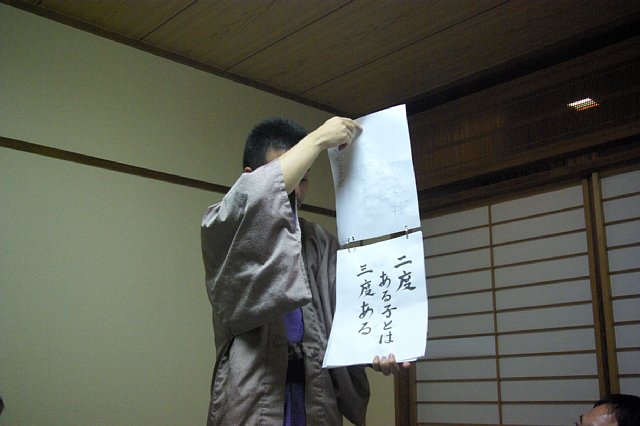 二度
ある子とは
三度ある